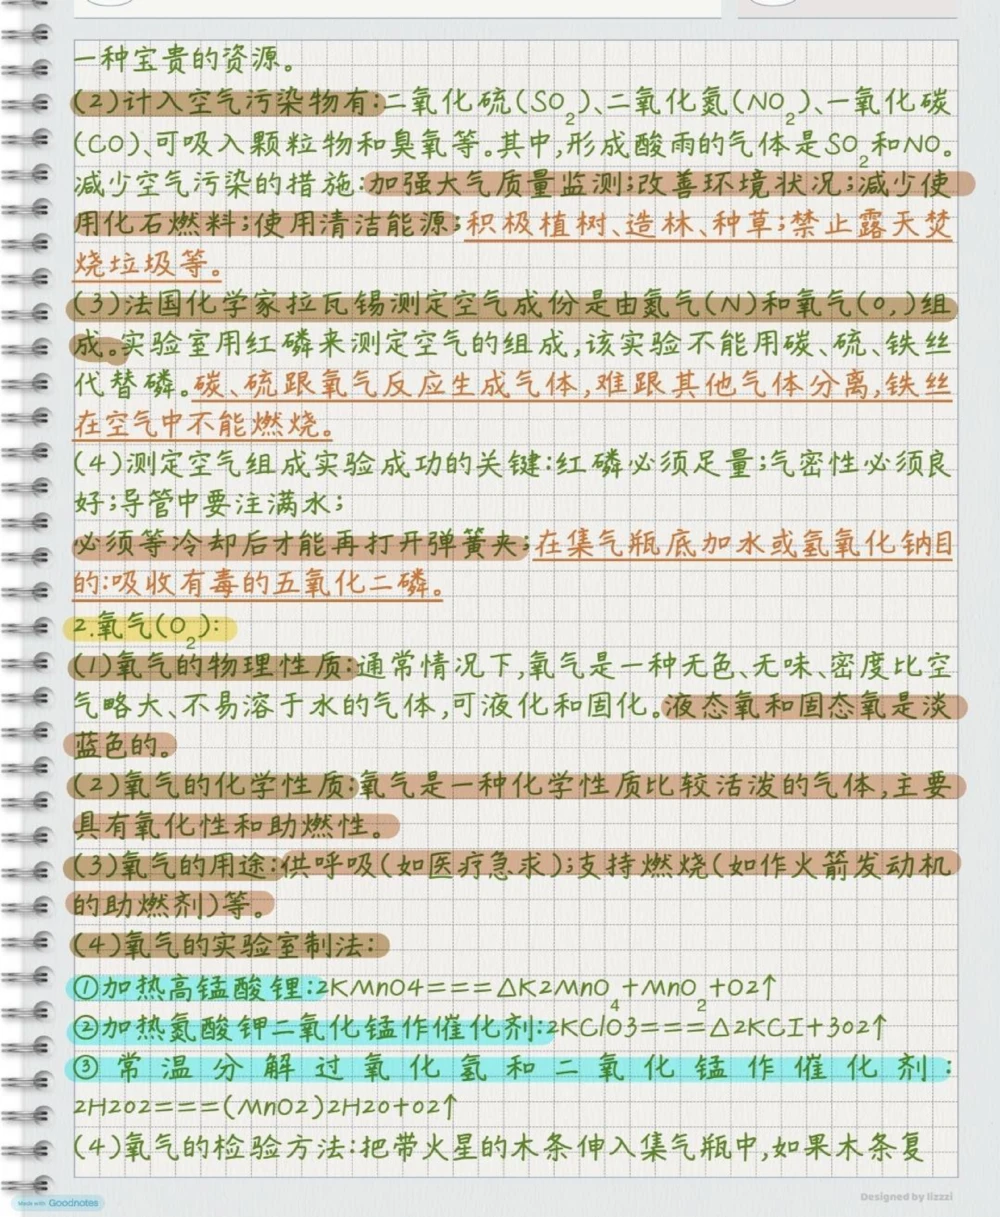 一种宝贵的资源。
(2)计入空气污染物有:二氧化硫(SO₂)、二氧化氮(NO₂)、一氧化碳
(CO)、可吸入颗粒物和臭氧等。其中,形成酸雨的气体是SO₂和NO。
减少空气污染的措施:加强大气质量监测;改善环境状况;减少使
用化石燃料;使用清洁能源;积极植树、造林、种草;禁止露天焚
烧垃圾等。
(3)法国化学家拉瓦锡测定空气成份是由氮气(N)和氧气(o,)组
成。实验室用红磷来测定空气的组成,该实验不能用碳、硫、铁丝
代替磷。碳、硫跟氧气反应生成气体,难跟其他气体分离,铁丝
在空气中不能燃烧。
(4)测定空气组成实验成功的关键:红磷必须足量;气密性必须良
好;导管中要注满水;
必须等冷却后才能再打开弹簧夹;在集气瓶底加水或氢氧化钠目
的:吸收有毒的五氧化二磷。
2.氧气(O₂):
(1)氧气的物理性质:通常情况下,氧气是一种无色、无味、密度比空
气略大、不易溶于水的气体,可液化和固化。液态氧和固态氧是淡
蓝色的。
(2)氧气的化学性质:氧气是一种化学性质比较活泼的气体,主要
具有氧化性和助燃性。
(3)氧气的用途:供呼吸(如医疗急求);支持燃烧(如作火箭发动机
的助燃剂)等。
(4)氧气的实验室制法:
①加热高锰酸锂:2KMnO4===△K2MnO₄+MnO₂+O2↑
②加热氮酸钾二氧化锰作催化剂:2KClO3===△2KCI+3o2↑
③常温分解过氧化氢和二氧化锰作催化剂:
2H2o2===(MnO2)2H2o+o2↑
(4)氧气的检验方法:把带火星的木条伸入集气瓶中,如果木条复
Made with Goodnotes
Designed by lizzzi